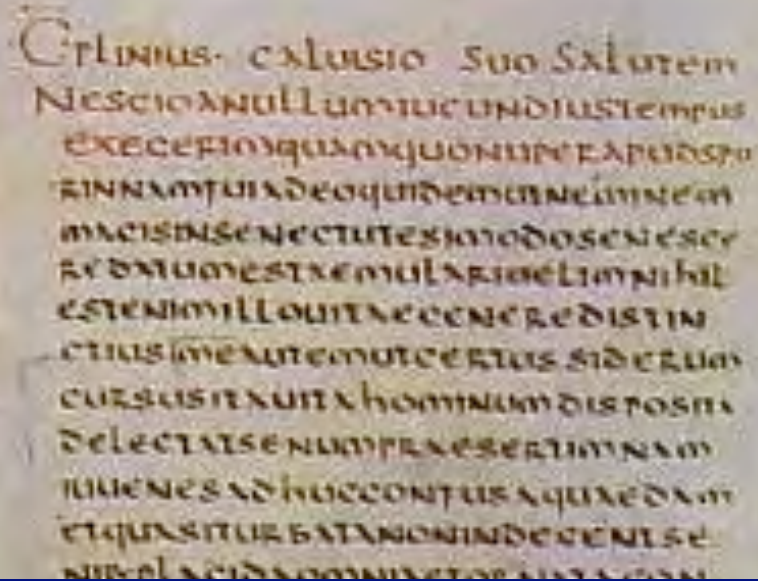 C·PLINIUS· CALUISIO SUO SALUTEM
NESCIOANULLUMIUCUNDIUSTEMPUS
EXEGERIMQUAMQUONUPERAPUDSPU
RINNAMFUIADEOQUIDEMUTNEMINEM
MAGISINSENECTUTESIMODOSENESCE
REDATUMESTAEMULARIUELIMNIHIL
ESTENIMILLOUITAEGENEREDISTIN
CTIUSMEAUTEMUTCERTUSSIDERUM
CURSUSITAUITAHOMINUMDISPOSITA
DELECTATSENUMPRAESERTIMNAM
IUUENESADHUCCONFUSAQUAEDAM
ETQUASITURBATANONINDECENTSE
NIB·PLACIDAOMNIAETORNATACON